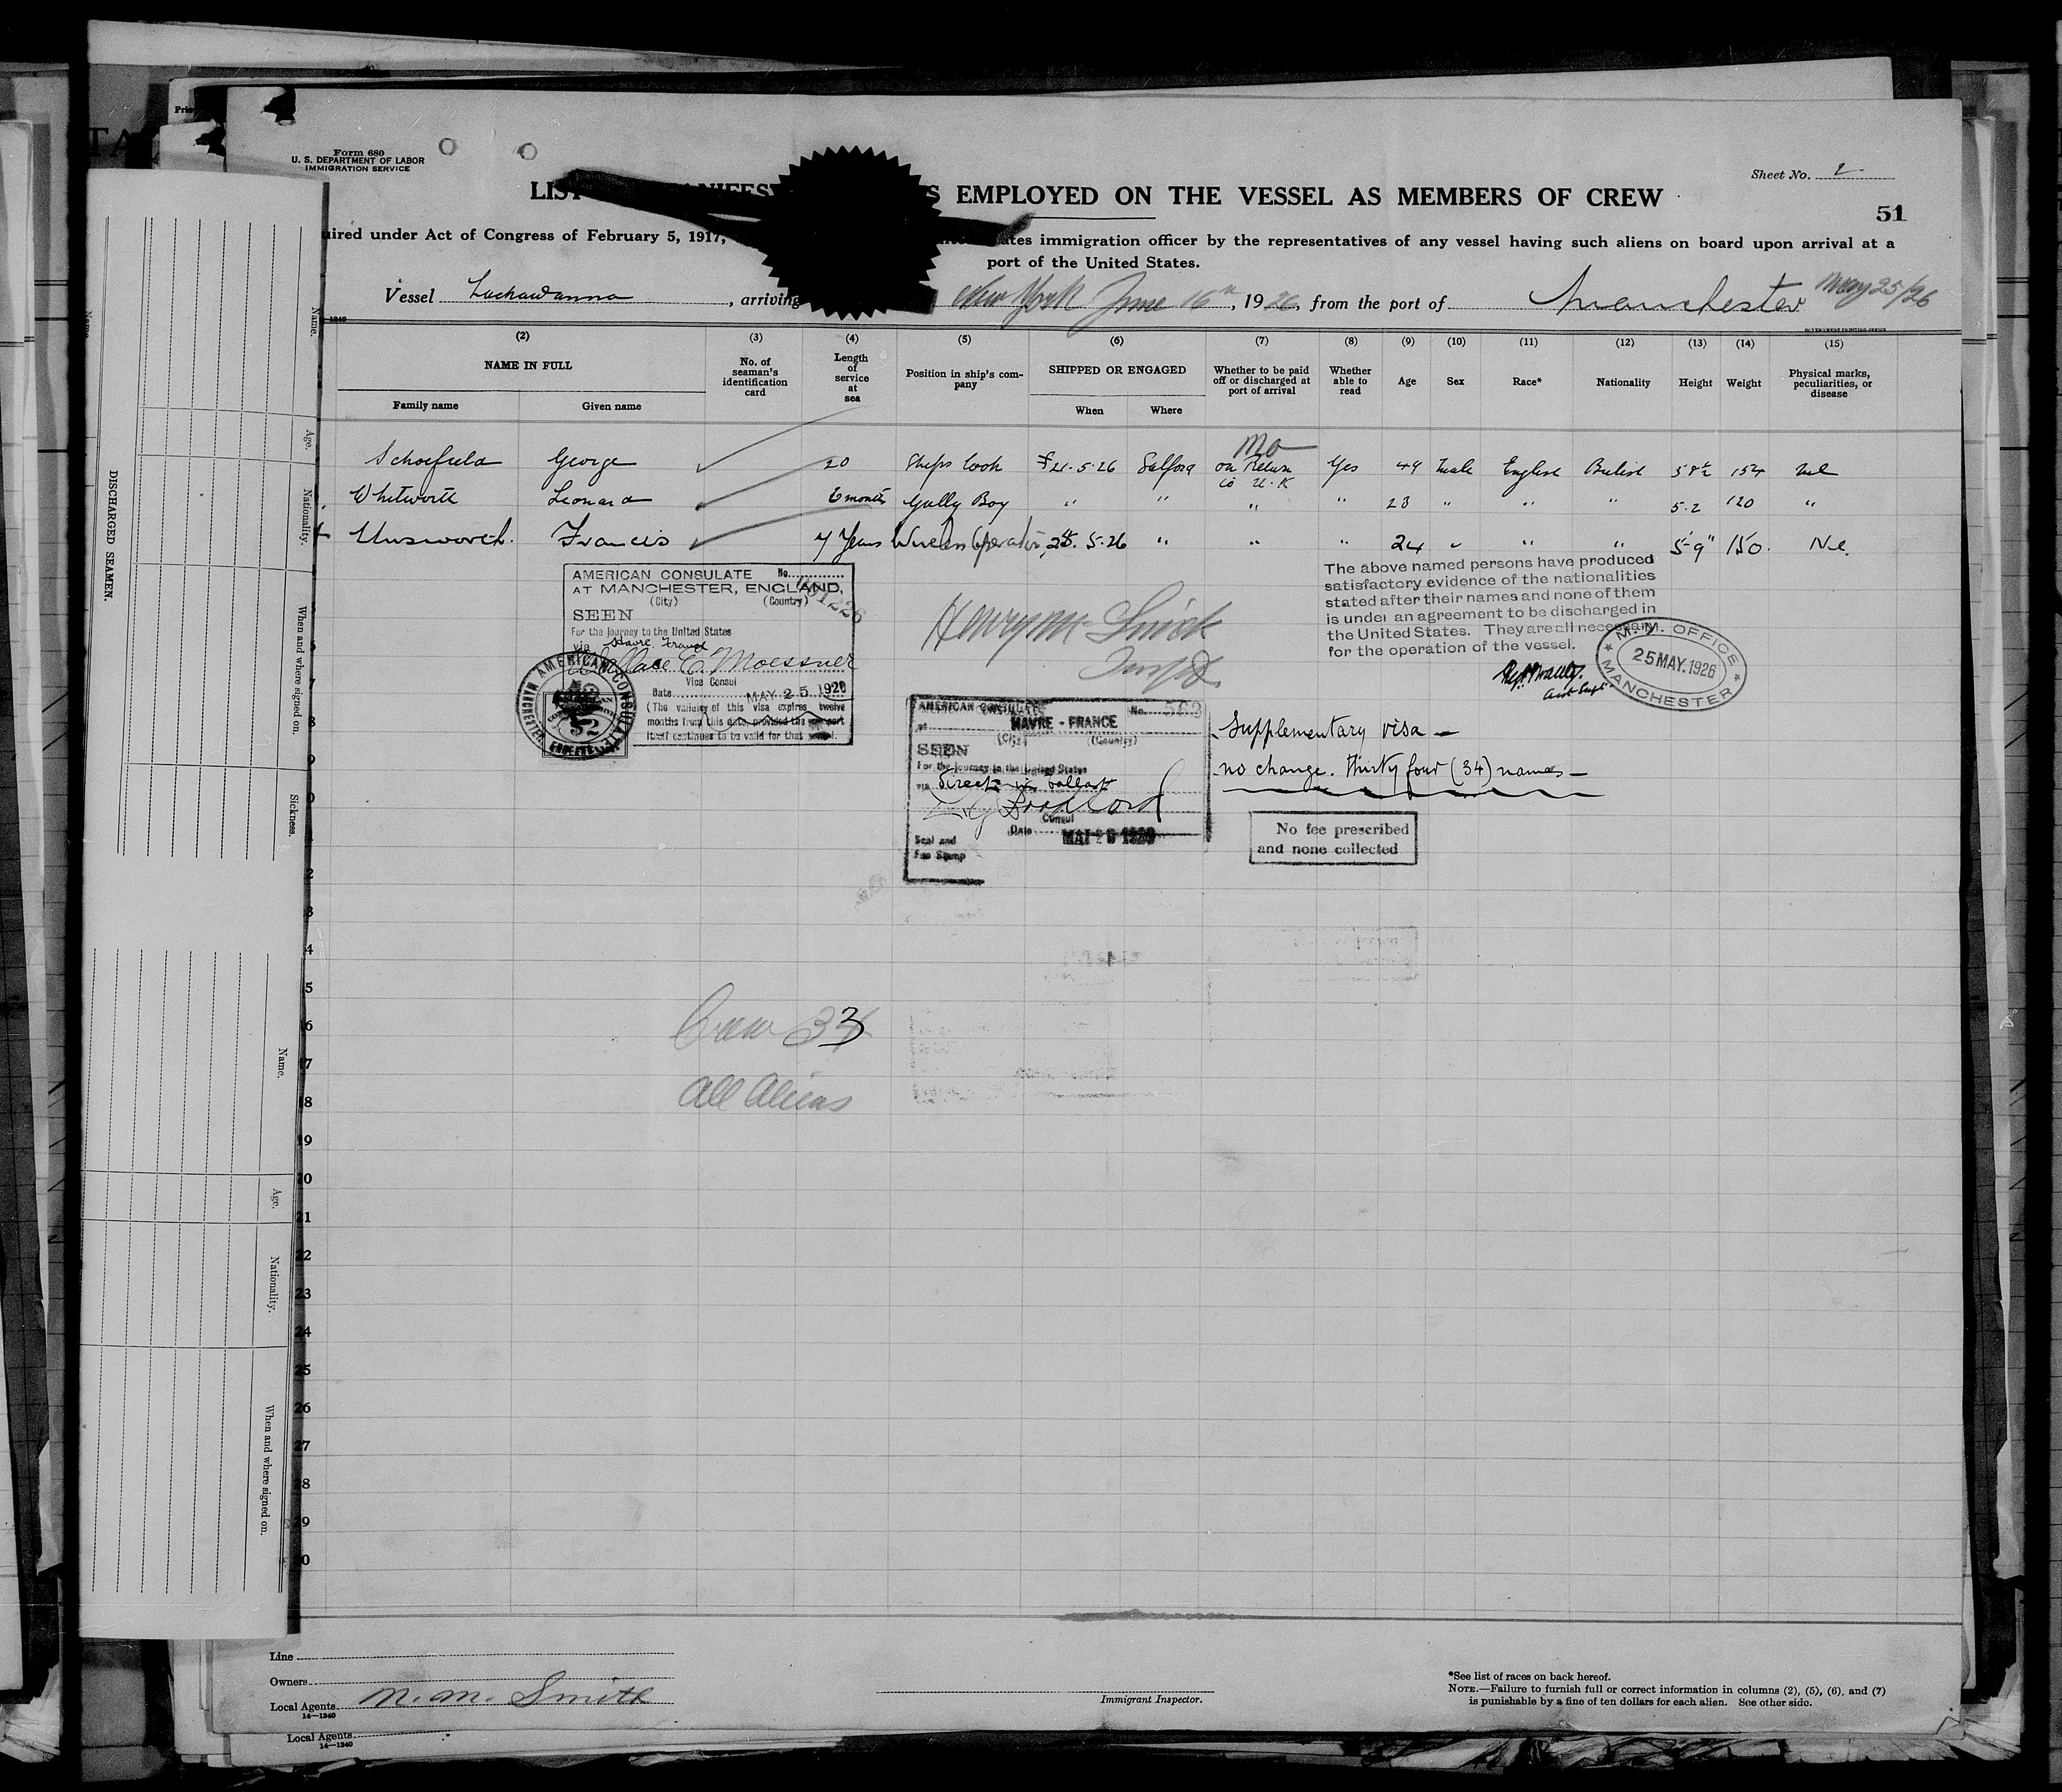 Form 680
U. S. DEPARTMENT OF LABOR
IMMIGRATION SERVICE
Sheet No. 2
LIST EMPLOYED ON THE VESSEL AS MEMBERS OF CREW
51
uired under Act of Congress of February 5, 1917, ates immigration officer by the representatives of any vessel having such aliens on board upon arrival at a
port of the United States.
Vessel Lackawanna, arriving New York June 16th, 1926, from the port of Manchester May 25/26
(2) (3) (4) (5) (6) (7) (8) (9) (10) (11) (12) (13) (14) (15)
NAME IN FULL
Family name
Given name
No. of seaman's identification card
Length of service at sea
Position in ship's company
SHIPPED OR ENGAGED
When
Where
Whether to be paid off or discharged at port of arrival
Whether able to read
Age
Sex
Race*
Nationality
Height
Weight
Physical marks, peculiarities, or disease
Schofield George 20 Ships Cook 21.5.26 Salford on Return to U.K Yes 49 Male English British 5 8½ 154 Nil
Whitworth Leonard 6 months Gally Boy " " " " 23 " " " 5.2 120 "
Unsworth. Francis 4 Years Wireless Operator, 25.5.26 " " " 24 " " " 5'9" 150. Nil.
AMERICAN CONSULATE No.
AT MANCHESTER, ENGLAND,
(City) (Country)
SEEN
For the journey to the United States
via Havre France
Wallace E. Moessner
Vice Consul
Date MAY 25 1926
(The validity of this visa expires twelve
months from this date, provided the passport
itself continues to be valid for that period.
AMERICAN CONSULATE
MANCHESTER
The above named persons have produced
satisfactory evidence of the nationalities
stated after their names and none of them
is under an agreement to be discharged in
the United States. They are all necessary
for the operation of the vessel.
M.M. OFFICE
25 MAY.1926
MANCHESTER
AMERICAN CONSULATE No. 563
at HAVRE - FRANCE
(City) (Country)
SEEN
For the journey to the United States
via direct in ballast
Consul
Date
Seal and
Fee Stamp
Supplementary visa —
no change. Thirty four (34) names —
No fee prescribed
and none collected
Crew 33
All Aliens
3
4
5
6
17
18
19
20
21
22
23
24
25
26
27
28
29
30
DISCHARGED SEAMEN.
Name.
Age.
Nationality.
When and where signed on.
Sickness.
Name.
Age.
Nationality.
When and where signed on.
Line
Owners
Local Agents N. M. Smith
14—1240
Local Agents
14—1240
Immigrant Inspector.
*See list of races on back hereof.
NOTE.—Failure to furnish full or correct information in columns (2), (5), (6), and (7)
is punishable by a fine of ten dollars for each alien. See other side.